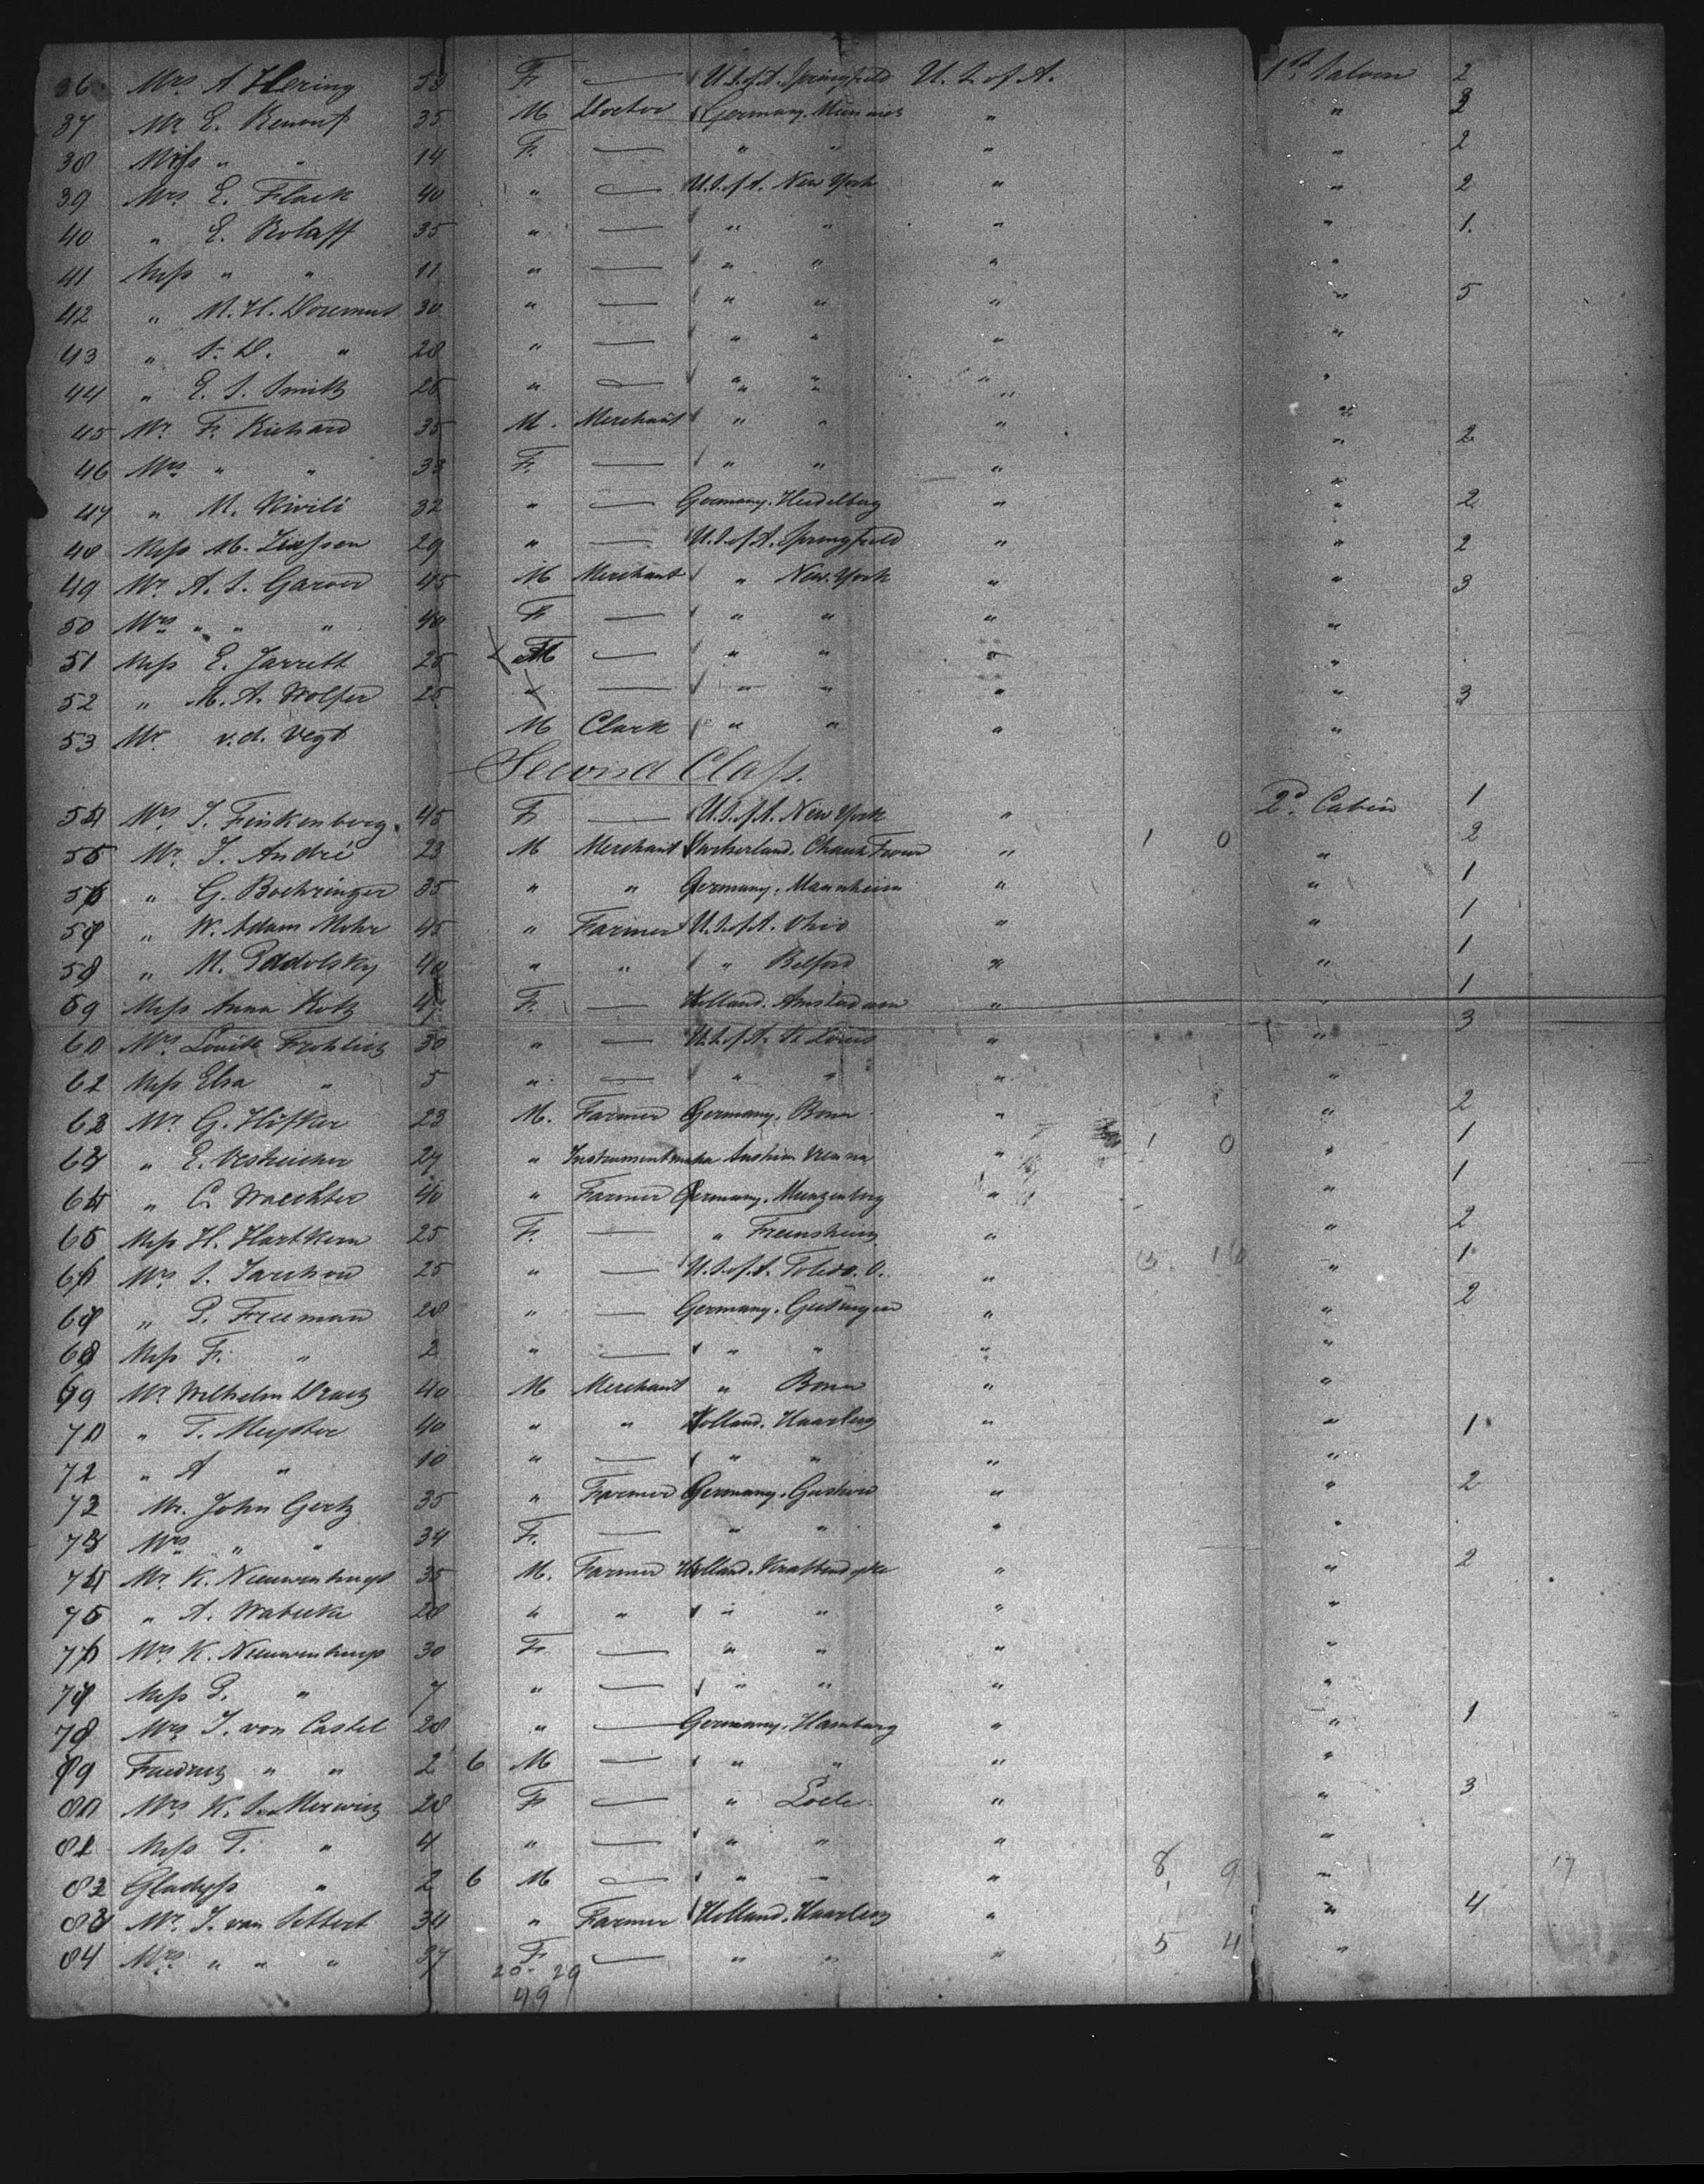 36 Mrs A Hering 53 F — U.S.of A. Springfield U.S. of A. 1st Saloon 2
37 Mr E. 35 M Doctor Germany. " " 3
38 Miss " " 14 F. — " " " " 2
39 Mrs E. Flack 40 " — U.S.of A. New York " " 2
40 " E. 35 " — " " " " 1.
41 Miss " " 11 " — " " " "
42 " M. H. Doremus 30 " — " " " " 5
43 " S. D. " 28 " — " " " "
44 " E. S. Smith 25 " — " " " "
45 Mr. F. Richard 35 M. Merchant " " " " 2
46 Mrs " " 33 F. — " " " "
47 " M. 32 " — Germany. Heidelberg " " 2
48 Miss M. 29 " — U.S.of A. Springfield " " 2
49 Mr. A. S. Garver 45 M Merchant " New York " " 3
50 Mrs " " " 40 F — " " " "
51 Miss E. Jarrett 25 — " " " "
52 " M. A. Wolfer 25 " — " " " " 3
53 Mr v.d. Vegt M Clark " " " "
Second Class.
54 Mrs J. Finkenberg. 45 F — U.S.of A. New York " 2d. Cabin 1
55 Mr. J. André 23 M Merchant " 1 0 " 2
56 " G. Boehringer 35 " " Germany. Mannheim " " 1
57 " W. Adam Mohr 45 " Farmer U.S.of A. Ohio " " 1
58 " M. Paddolsky 40 " " " Belford " " 1
59 Miss Anna Kotz F. — Holland. Amsterdam " " 1
60 Mrs. Louise Frohlich 30 " — U.S.of A. St Louis " " 3
61 Miss Elsa " 5 " — " " " "
62 Mr G. Hifker 23 M. Farmer Germany. Bonn " " 2
63 " E. 27 " Instrumentmaker Austria Vienna " 1 0 " 1
64 " C. Waechter 40 " Farmer Germany. Munzenberg " " 1
65 Miss H. Hartkorn 25 F. — " Freinsheim " " 2
66 Mrs S. 25 " — U.S.of A. Toledo. O. " " 1
67 " P. Freeman 28 " — Germany. " " 2
68 Miss F. " 2 " — " " " "
69 Mr Wilhelm 40 M Merchant " Bonn " "
70 " T. 40 " " Holland. Haarlem " " 1
71 " A " 10 " — " " " "
72 Mr. John Gertz 35 " Farmer Germany. " " 2
73 Mrs " " 34 F. — " " " "
74 Mr. K. Nieuwenhuys 35 M. Farmer Holland. " " 2
75 " A. Wabeke 28 " " " " " "
76 Mrs K. Nieuwenhuys 30 F — " " " "
77 Miss P. " 7 " — " " " "
78 Mrs J. von Castel 28 " — Germany. Hamburg " " 1
79 " " 2 6 M — " " " "
80 Mrs K. 28 F — " " " 3
81 Miss T. " 4 " — " " " "
82 Gladyss " 2 6 M — " " " 8, 9 " 17
83 Mr. J. van 34 " Farmer Holland. Haarlem " " 4
84 Mrs " " " 37 F — " " " 5 4 "
20 - 29
49